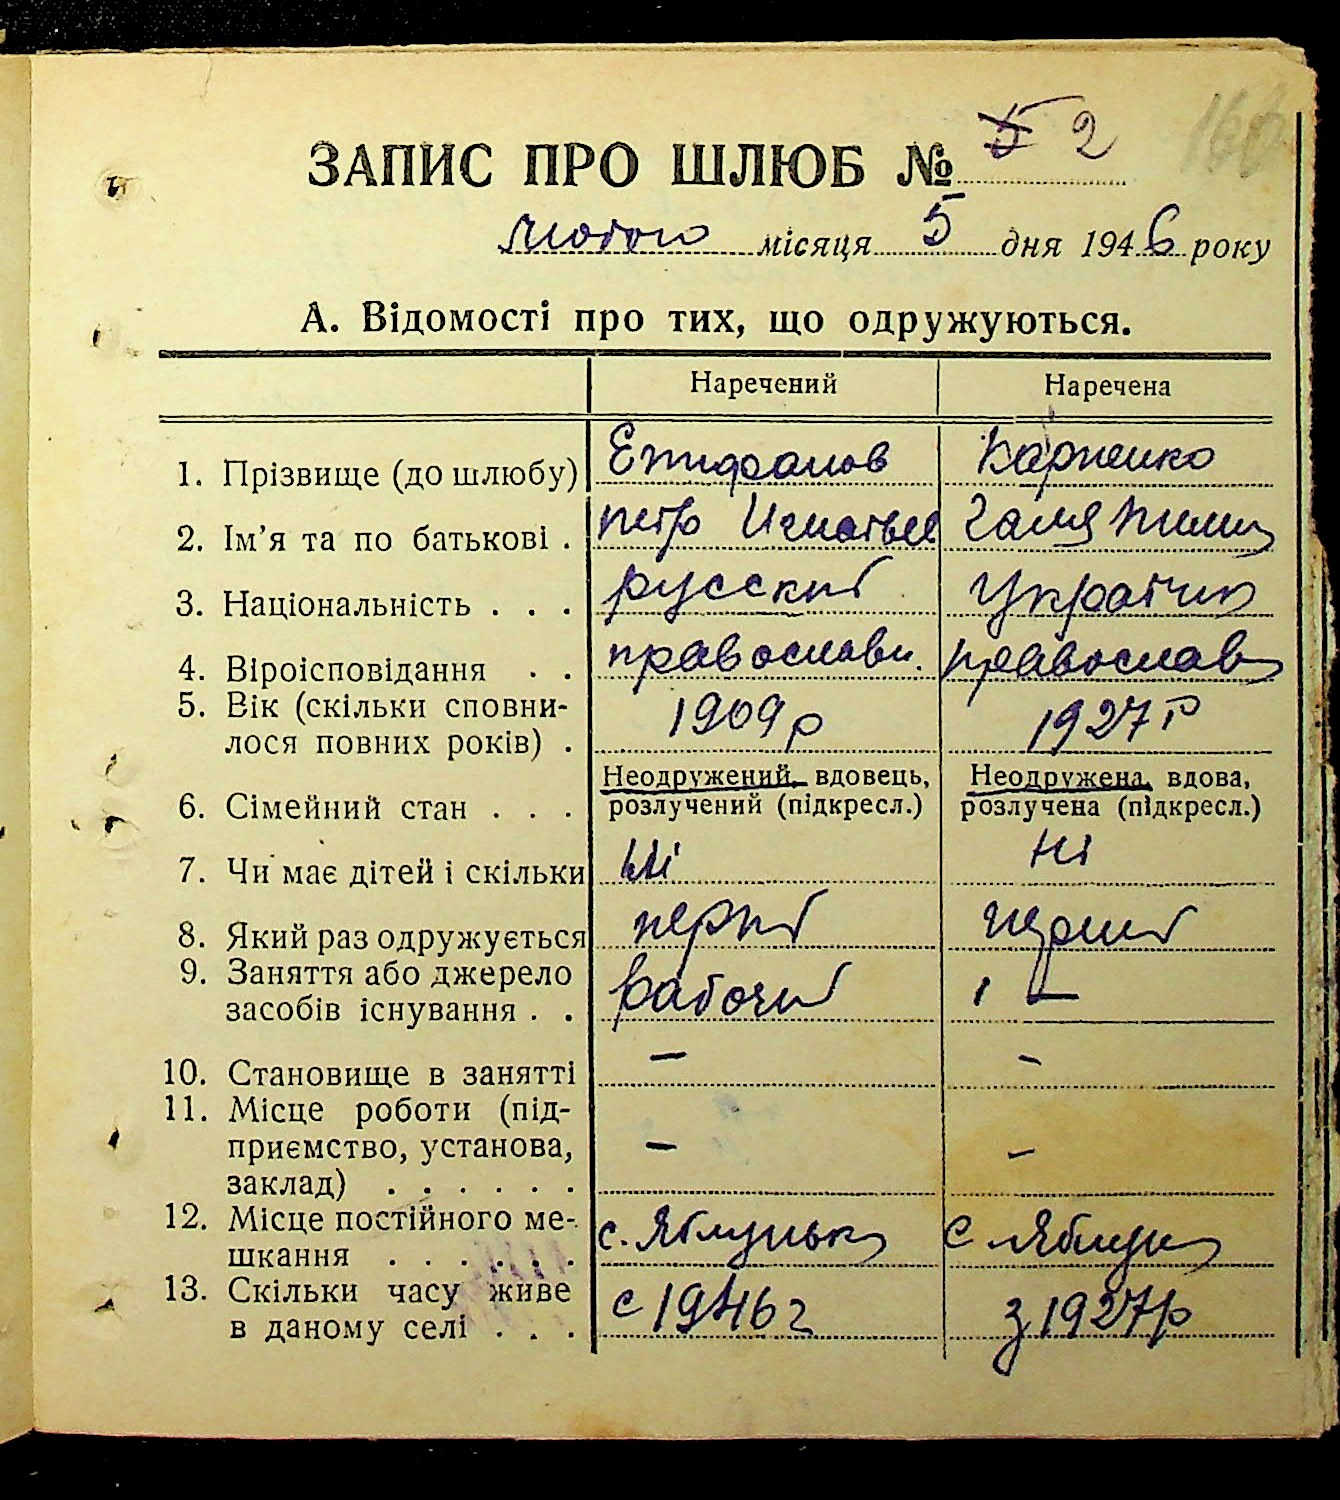 ЗАПИС ПРО ШЛЮБ № 5 2
лютого місяця 5 дня 1946 року
А. Відомості про тих, що одружуються.
Наречений Наречена
1. Прізвище (до шлюбу) Епифанов Карпенко
2. Ім’я та по батькові . петр Игнатьев Галя
3. Національність . . . русский Україн
4. Віроісповідання . . православн. православ
5. Вік (скільки сповни-
лося повних років) . 1909 р 1927 р
Неодружений, вдовець, Неодружена, вдова,
6. Сімейний стан . . . розлучений (підкресл.) розлучена (підкресл.)
7. Чи має дітей і скільки Ні Ні
8. Який раз одружується перший перший
9. Заняття або джерело
засобів існування . . рабочий —
10. Становище в занятті — –
11. Місце роботи (під-
приємство, установа, – –
заклад) . . . . . .
12. Місце постійного ме-
шкання . . . . . . с. Яблуньк с Яблун
13. Скільки часу живе
в даному селі . . . с 1946 г з 1927 р